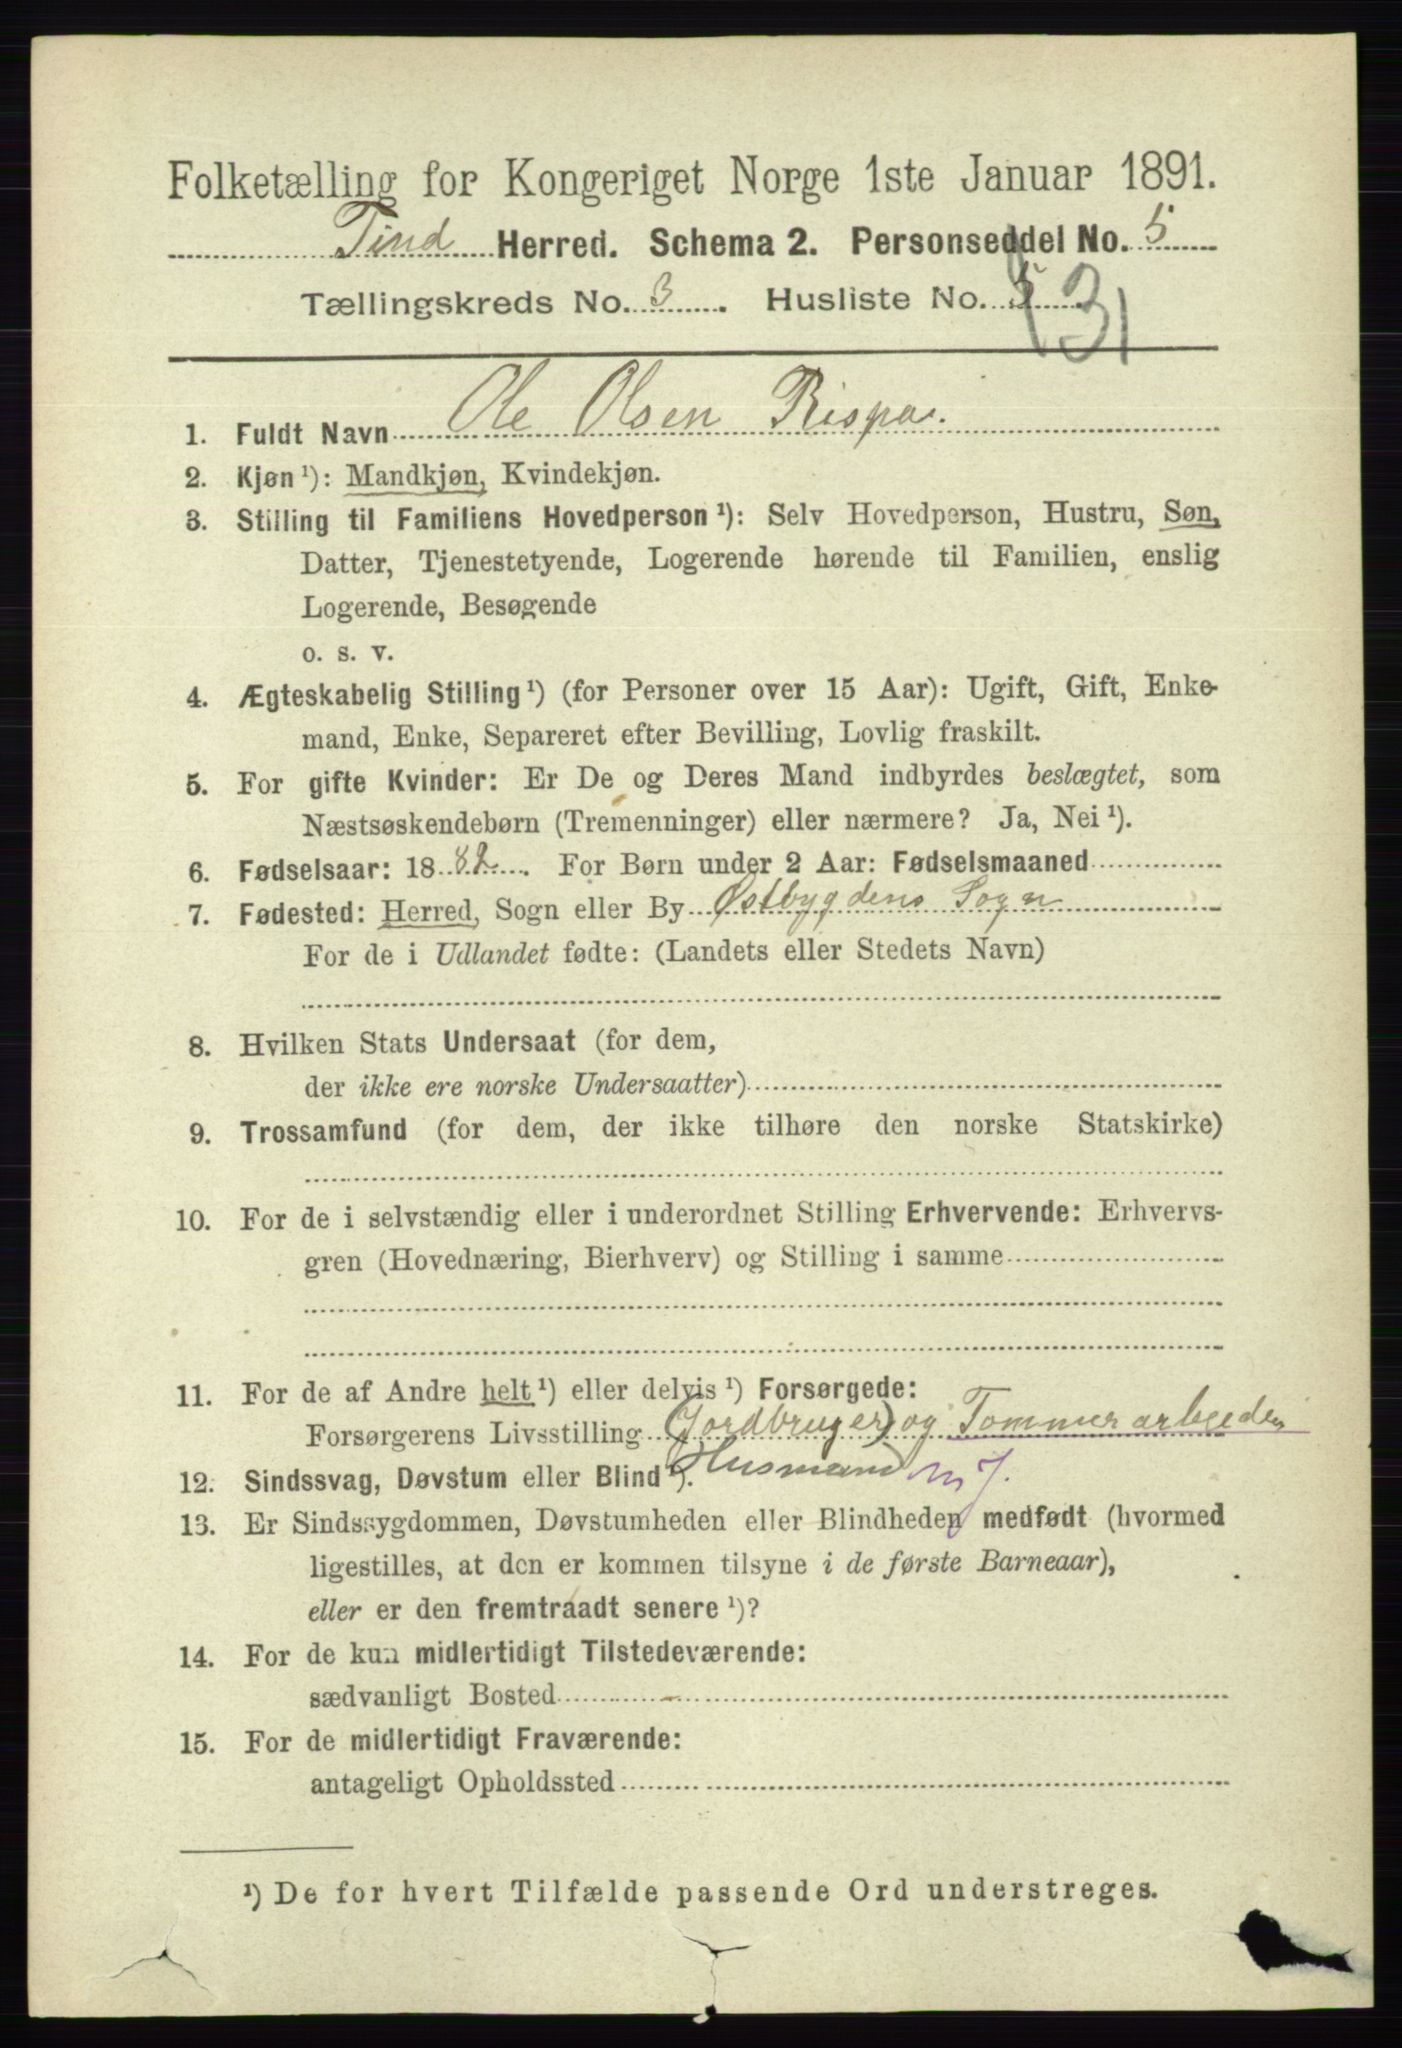 Folketælling for Kongeriget Norge 1ste Januar 1891.
Tind Herred. Schema 2. Personseddel No. 5
Tællingskreds No. 3. Husliste No. 5 (3)
1. Fuldt Navn Ole Olsen Rispa.
2. Kjøn ¹): Mandkjøn, Kvindekjøn.
3. Stilling til Familiens Hovedperson ¹): Selv Hovedperson, Hustru, Søn,
Datter, Tjenestetyende, Logerende hørende til Familien, enslig
Logerende, Besøgende
o. s. v.
4. Ægteskabelig Stilling ¹) (for Personer over 15 Aar): Ugift, Gift, Enke-
mand, Enke, Separeret efter Bevilling, Lovlig fraskilt.
5. For gifte Kvinder: Er De og Deres Mand indbyrdes beslægtet, som
Næstsøskendebørn (Tremenninger) eller nærmere? Ja, Nei ¹).
6. Fødselsaar: 1882. For Børn under 2 Aar: Fødselsmaaned
7. Fødested: Herred, Sogn eller By Østbygdens Sogn
For de i Udlandet fødte: (Landets eller Stedets Navn)
8. Hvilken Stats Undersaat (for dem,
der ikke ere norske Undersaatter)
9. Trossamfund (for dem, der ikke tilhøre den norske Statskirke)
10. For de i selvstændig eller i underordnet Stilling Erhvervende: Erhvervs-
gren (Hovednæring, Bierhverv) og Stilling i samme
11. For de af Andre helt ¹) eller delvis ¹) Forsørgede:
Forsørgerens Livsstilling (Jordbruger) og Tømmerarbeider
Husmand m J.
12. Sindssvag, Døvstum eller Blind ¹).
13. Er Sindssygdommen, Døvstumheden eller Blindheden medfødt (hvormed
ligestilles, at den er kommen tilsyne i de første Barneaar),
eller er den fremtraadt senere ¹)?
14. For de kun midlertidigt Tilstedeværende:
sædvanligt Bosted
15. For de midlertidigt Fraværende:
antageligt Opholdssted
¹) De for hvert Tilfælde passende Ord understreges.